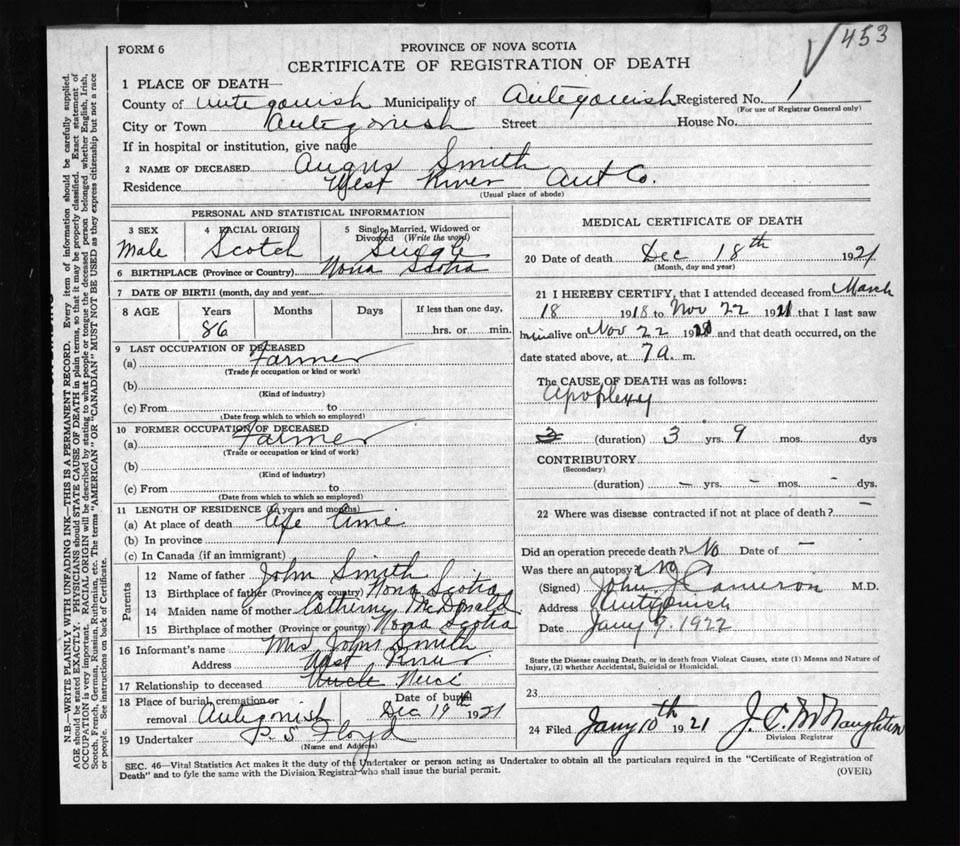 453
FORM 6
PROVINCE OF NOVA SCOTIA
CERTIFICATE OF REGISTRATION OF DEATH
1 PLACE OF DEATH—
County of Antigonish Municipality of Antigonish Registered No. 1
(For use of Registrar General only)
City or Town Antigonish Street House No.
If in hospital or institution, give name
2 NAME OF DECEASED Angus Smith
Residence West River Ant Co.
(Usual place of abode)
PERSONAL AND STATISTICAL INFORMATION
3 SEX Male
4 RACIAL ORIGIN Scotch
5 Single, Married, Widowed or Divorced (Write the word) Single
6 BIRTHPLACE (Province or Country) Nova Scotia
7 DATE OF BIRTH (month, day and year)
8 AGE Years Months Days If less than one day,
86 hrs. or min.
9 LAST OCCUPATION OF DECEASED
(a) Farmer
(Trade or occupation or kind or work)
(b)
(Kind of industry)
(c) From to
(Date from which to which so employed)
10 FORMER OCCUPATION OF DECEASED
(a) Farmer
(Trade or occupation or kind of work)
(b)
(Kind of industry)
(c) From to
(Date from which to which so employed)
11 LENGTH OF RESIDENCE (In years and months)
(a) At place of death life time
(b) In province
(c) In Canada (if an immigrant)
Parents
12 Name of father John Smith
13 Birthplace of father (Province or country) Nova Scotia
14 Maiden name of mother Catherine McDonald
15 Birthplace of mother (Province or country) Nova Scotia
16 Informant's name Mrs John Smith
Address West River
17 Relationship to deceased Uncle Neice
18 Place of burial, cremation or removal Antigonish
Date of burial Dec 19th 1921
19 Undertaker P. S. Floyd
(Name and Address)
MEDICAL CERTIFICATE OF DEATH
20 Date of death Dec 18th 1921
(Month, day and year)
21 I HEREBY CERTIFY, that I attended deceased from March
18 1918 to Nov 22 1921 that I last saw
him alive on Nov 22 1921 and that death occurred, on the
date stated above, at 7 a. m.
The CAUSE OF DEATH was as follows:
Apoplexy
(duration) 3 yrs. 9 mos. dys
CONTRIBUTORY
(Secondary)
(duration) – yrs. – mos. – dys.
22 Where was disease contracted if not at place of death? –
Did an operation precede death? No Date of –
Was there an autopsy? No
(Signed) John J Cameron M.D.
Address Antigonish
Date Jany 9. 1922
State the Disease causing Death, or in death from Violent Causes, state (1) Means and Nature of
Injury, (2) whether Accidental, Suicidal or Homicidal.
23
24 Filed Jany 10th 1921 J. C. McNaughton
Division Registrar
SEC. 46—Vital Statistics Act makes it the duty of the Undertaker or person acting as Undertaker to obtain all the particulars required in the "Certificate of Registration of
Death" and to fyle the same with the Division Registrar who shall issue the burial permit.
(OVER)
N.B.—WRITE PLAINLY WITH UNFADING INK—THIS IS A PERMANENT RECORD. Every item of information should be carefully supplied.
AGE should be stated EXACTLY. PHYSICIANS should STATE CAUSE OF DEATH in plain terms, so that it may be properly classified. Exact statement of
OCCUPATION is very important. RACIAL ORIGIN will be described by stating to what people or tongue the deceased person belonged whether English, Irish,
Scotch, French, German, Russian, Ruthenian, etc. The terms "AMERICAN" OR "CANADIAN" MUST NOT BE USED as they express citizenship but not a race
or people. See instructions on back of Certificate.